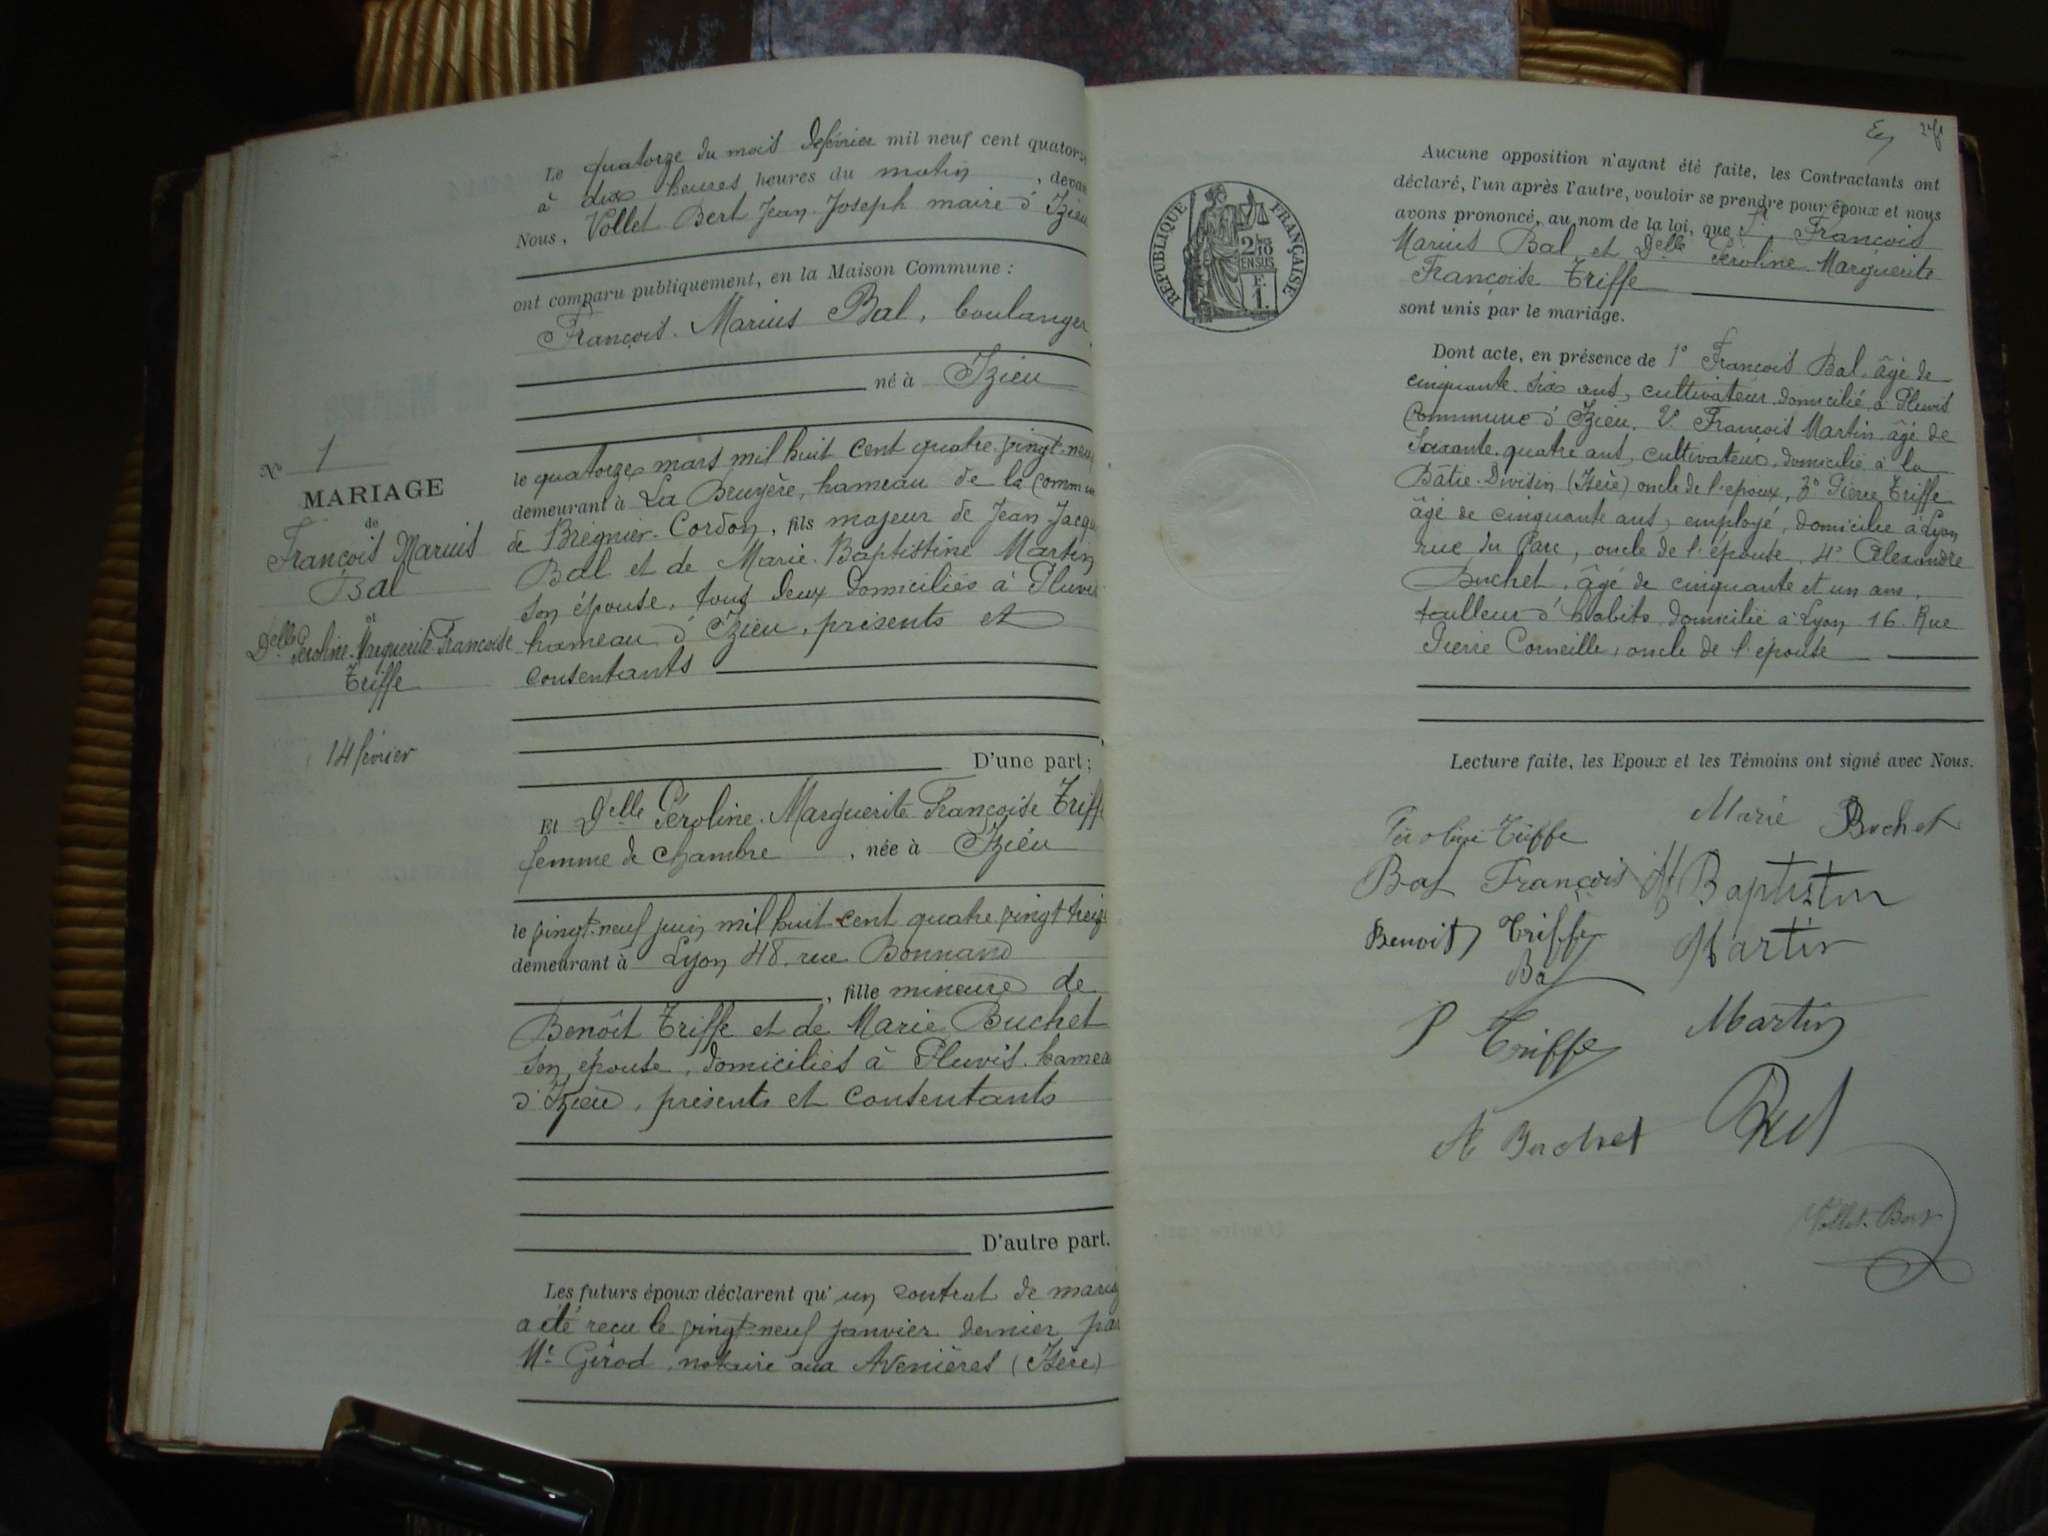 Le quatorze du mois de février mil neuf cent quatorze
à dix heures heures du matin, devan
Nous, Vollet Bert Jean Joseph maire d'Izieu
ont comparu publiquement, en la Maison Commune :
François Marius Bal, boulanger
né à Izieu
le quatorze mars mil huit cent quatre vingt neu
demeurant à La Bruyère, hameau de la commu
de Brégnier-Cordon, fils majeur de Jean Jacqu
Bal et de Marie Baptistine Martin
son épouse, tous deux domiciliés à Pluvis
hameau d'Izieu, présents et
consentants
D'une part;
Et Delle Péroline Marguerite Françoise Triffe
femme de chambre, née à Izieu
le vingt-neuf juin mil huit cent quatre vingt treize
demeurant à Lyon 48 rue Bonnand
, fille mineure de
Benoît Triffe et de Marie Buchet
son épouse, domiciliés à Pluvis hamea
d'Izieu, présents et consentants
D'autre part.
Les futurs époux déclarent qu'un contrat de mariag
a été reçu le vingt-neuf janvier dernier par
Me Girod, notaire aux Avenières (Isère)
No 1
MARIAGE
de
François Marius
Bal
et
Delle Péroline Marguerite Françoise
Triffe
14 février
RÉPUBLIQUE FRANÇAISE
2/10 EN SUS
F. 1.
Aucune opposition n'ayant été faite, les Contractants ont
déclaré, l'un après l'autre, vouloir se prendre pour époux et nous
avons prononcé, au nom de la loi, que Sr François
Marius Bal et Delle Péroline Marguerite
Françoise Triffe
sont unis par le mariage.
Dont acte, en présence de 1° François Bal, âgé de
cinquante six ans, cultivateur domicilié à Pluvis
commune d'Izieu, 2° François Martin âgé de
soixante-quatre ans, cultivateur, domicilié à la
Bâtie-Divisin (Isère) oncle de l'époux, 3° Pierre Triffe
âgé de cinquante ans, employé, domicilié à Lyon
rue du Parc, oncle de l'épouse, 4° Alexandre
Buchet, âgé de cinquante et un ans,
tailleur d'habits domicilié à Lyon 16 Rue
Pierre Corneille, oncle de l'épouse
Lecture faite, les Epoux et les Témoins ont signé avec Nous.
Péroline Triffe
Marie Buchet
Bal François
Baptistin
Benoit Triffe
Martin
Bal
P Triffe
Martin
A Buchet
Vollet-Bert